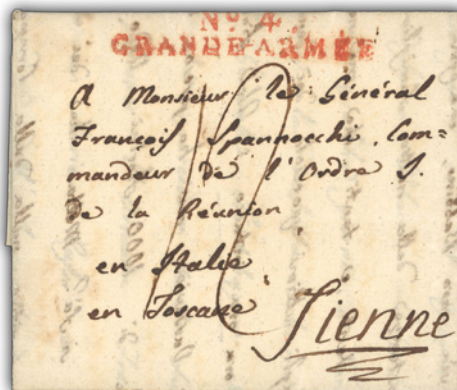 No 4.
GRANDE-ARMÉE
A Monsieur le Général
François Spannocchi, Com=
mandeur de l'Ordre I.
de la Réunion
en Italie
en Toscane
Sienne